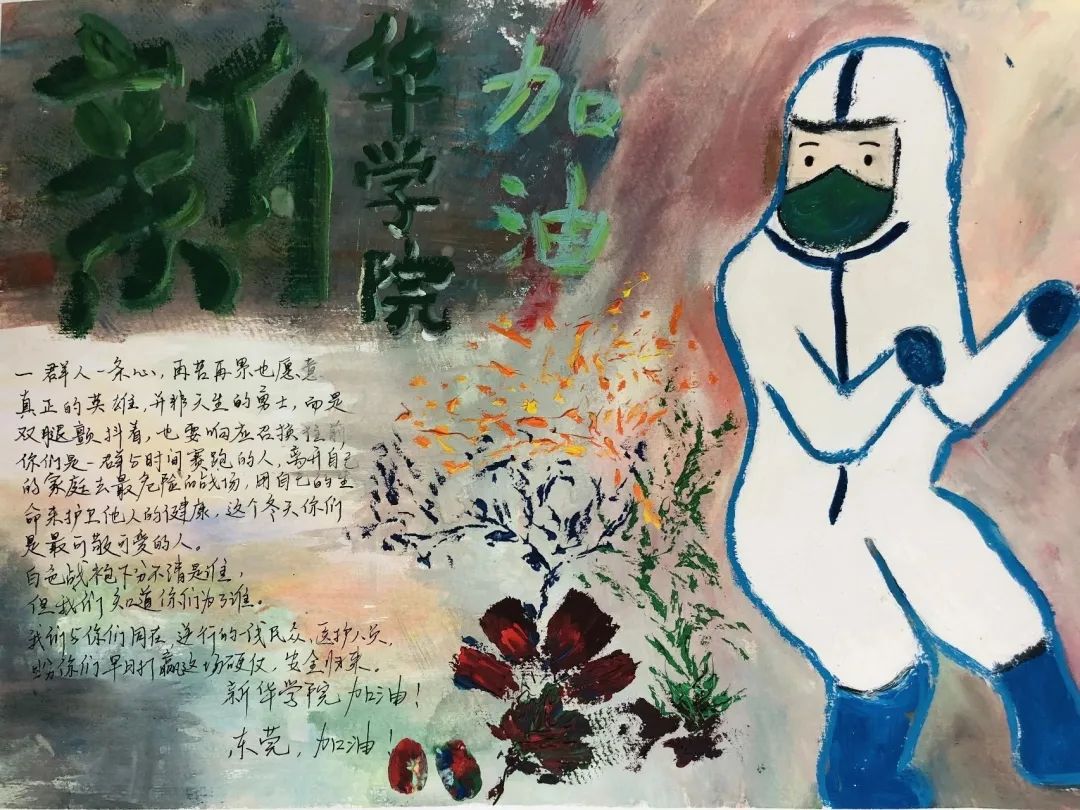 新
华学院
加油
一群人一条心，再苦再累也愿意
真正的英雄，并非天生的勇士，而是
双腿颤抖着，也要响应召换往前，
你们是一群与时间赛跑的人，离开自己
的家庭去最危险的战场，用自己的生
命来护卫他人的健康，这个冬天你们
是最可敬可爱的人。
白色战袍下分不清是谁，
但我们知道你们为了谁。
我们与你们同在 逆行的一线民众，医护人员，
盼你们早日打赢这场硬仗，安全归来。
新华学院加油！
东莞，加油！